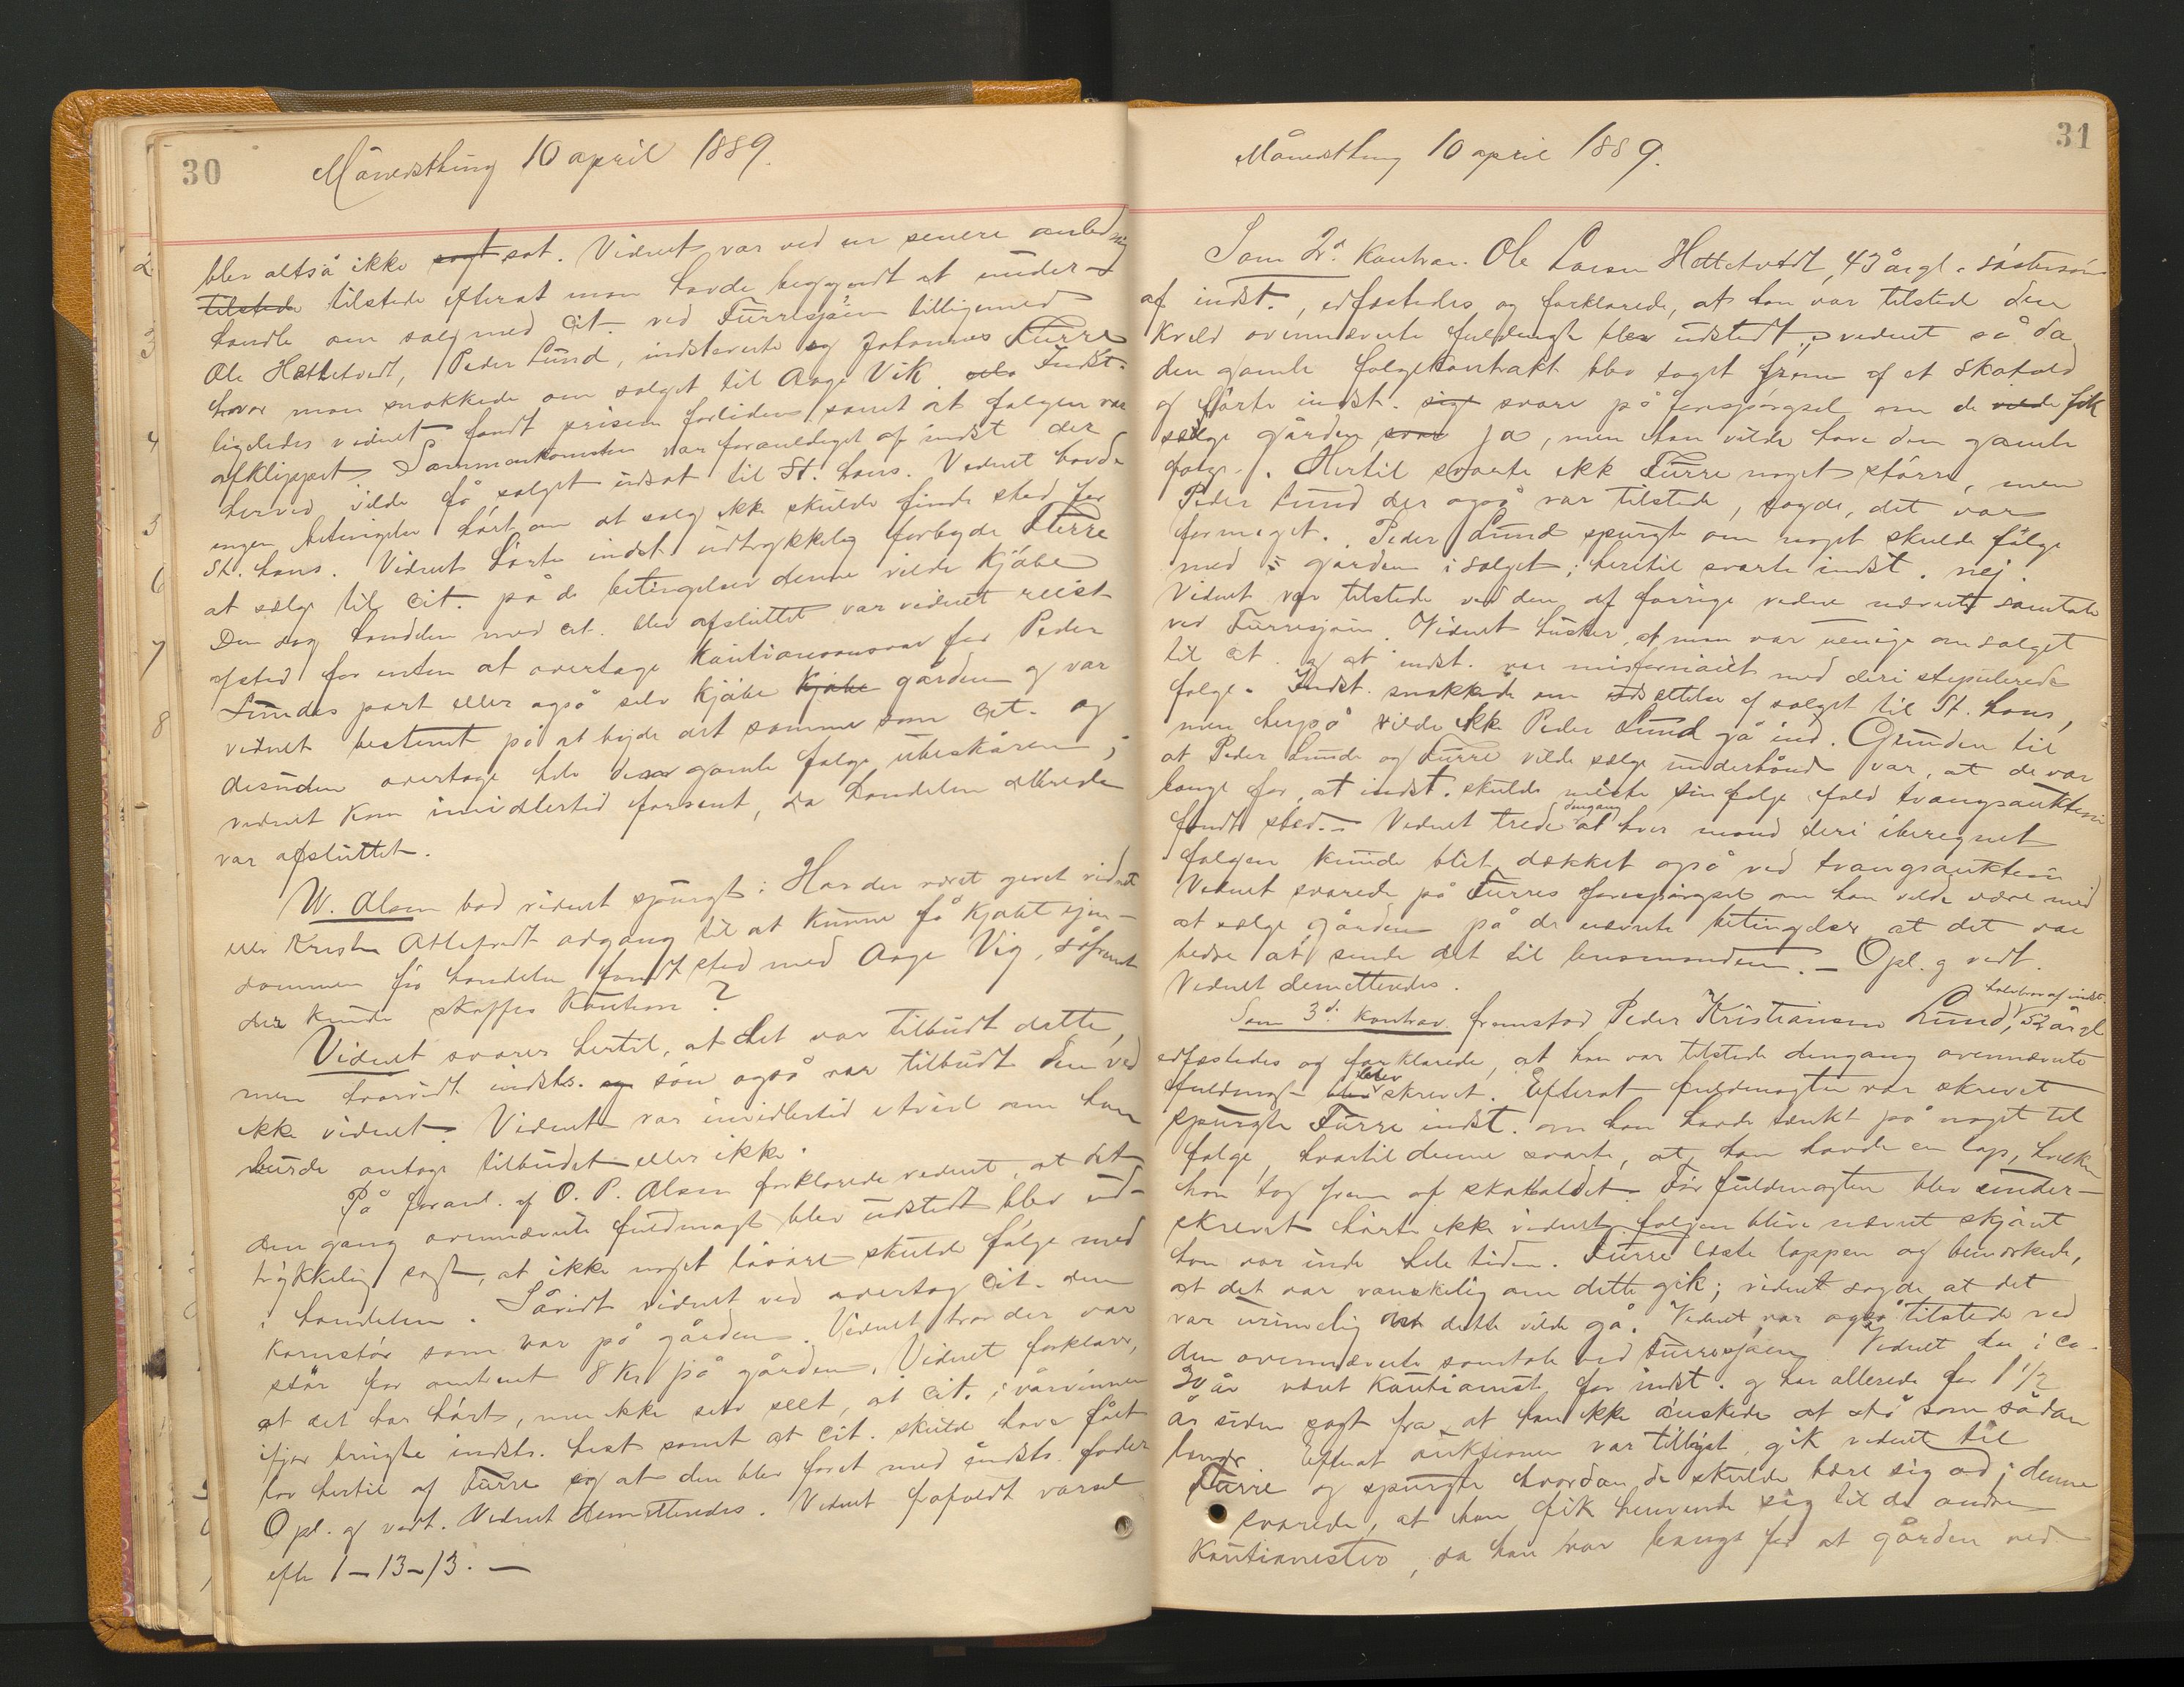 30
Månedsthing 10 april 1889.
blev altså ikke sagt sat. Vidnet var ved en senere anledning
tilstede tilstede efterat man havde begyndt at under-
handle om salg med cit. ved Furresjøen tilligemed
Ole Hettetvedt, Peder Lund, indstevnte og Johannes Furre
hvor man snakkede om salget til Aage Vik. Indst.
ligeledes vidnet fandt prisen forliden samt at folgen var
afklippet. Sammenkomsten var foranlediget af indst der
herved vilde få salget udsat til St. Hans. Vidnet havde
ingen betingelse hørt om at salg ikke skulde finde sted før
St. Hans. Vidnet hørte indst. udtrykkelig forbyde Furre
at sælge til cit. på de betingelser denne vilde kjøbe
Den dag handelen med cit. blev afsluttet var vidnet reist
afsted for enten at overtage kautionsansvar for Peder
Lundes part eller også selv kjøbe kjøbe gården og var
vidnet bestemt på at byde det samme som cit. og
desuden overtage hele den gamle folge ubeskåren;
vidnet kom imidlertid forsent, da handelen allerede
var afsluttet.
W. Olsen bad vidnet spurgt: Har der været givet vidnet
eller Kristen adgang til at kunne få kjøbt ejen-
dommen før handelen fandt sted med Aage Vig, såfremt
der kunde skaffes kaution?
Vidnet svarer hertil, at det var tilbudt dette,
men hvorvidt indsts. og søn også var tilbudt den ved
ikke vidnet. Vidnet var imidlertid i tvivl om han
burde antage tilbudet eller ikke.
På foranl. af O. P. Olsen forklarede vidnet, at det
den gang ovennævnte fuldmagt blev udstedt blev ud-
trykkelig sagt, at ikke noget løsøre skulde følge med
i handelen. Såvidt vidnet ved overtog cit. den
kornstør som var på gården. Vidnet tror der var
stør for omtrent 8 Kr på gården. Vidnet forklarer,
at det har hørt, men ikke selv seet, at cit. i vårvinnen
ifjor brugte indsts. hest samt at cit. skulde have fået
lov hertil af Furre og at den blev foret med indsts. foder
Opl. og vedt. Vidnet demitteredes. Vidnet frafaldt varsel
efter 1-13-13. —
31
Månedsthing 10 april 1889.
Som 2d. Kontrav. Ole Larsen Hettetvedt, 43 årgl. søstersøn
af indst., edfæstedes og forklarede, at han var tilsted den
kveld ovennævnte fuldmagt blev udstedt; vidnet så da
den gamle folgekontrakt blev taget frem af et skatold
og hørte indst. sige svare på forespørgsel om de vilde fik
sælge gården svar ja, men han vilde have den gamle
folge. Hertil svarte ikk Furre noget større, men
Peder Lund der også var tilstede, sagde, det var
formeget. Peder Lund spurgte om noget skulde følge
med gården i salget; hertil svarte indst. nej.
Vidnet var tilstede ved den af forrige vidne nævnte samtale
ved Furresjøen. Vidnet husker, at man var uenige om salget
til cit. og at indst. var misfornøiet med deri stipulerede
folge. Indst. snakkede om udsættelse af salget til St. Hans,
men herpå vilde ikk Peder Lund gå ind. Grunden til
at Peder Lunde og Furre vilde sælge underhånd var, at de var
bange for, at indst. skulde miste sin folge ifald tvangsauktion
fandt sted. – Vidnet trode dengang at hver mand deri iberegnet
folgen kunde blit dækket også ved tvangsauktion
Vidnet svarede på Furres forespørgsel om han vilde være med
at sælge gården på de nævnte betingelser at det var
bedre at sende det til lensmanden. – Opl. og vedt.
Vidnet demitteredes.
Som 3d. kontrav fremstod Peder Kristiansen Lund, halvbror af indst. 52 årgl
edfæstedes og forklarede, at han var tilstede dengang ovennævnte
fuldmagt blev blev skrevet. Efterat fuldmagten var skrevet
spurgte Furre indst. om han havde tænkt på noget til
folge, hvortil denne svarte, at han havde en lap, hvilken
han tog frem af skatholdet. Før fuldmagten blev under-
skrevet hørte ikke vidnet folgen blive nævnt skjønt
han var inde hele tiden. Furre læste lappen og bemærkede,
at det var vanskelig om dette gik; vidnet sagde at det
var urimelig at dette vilde gå. Vidnet var også tilstede ved
den ovennævnte samtale ved Furresjøen. Vidnet har i ca.
20 år været kautionist for indst. og har allerede for 1 1/2
år siden sagt fra at han ikke ønskede at stå som sådan
længer. Efterat auktionen var tillyst, gik vidnet til
Furre og spurgte hvordan de skulde bære sig ad; denne
svarede, at han fik henvende sig til de andre
kautionister, da han var bange for at gården ved